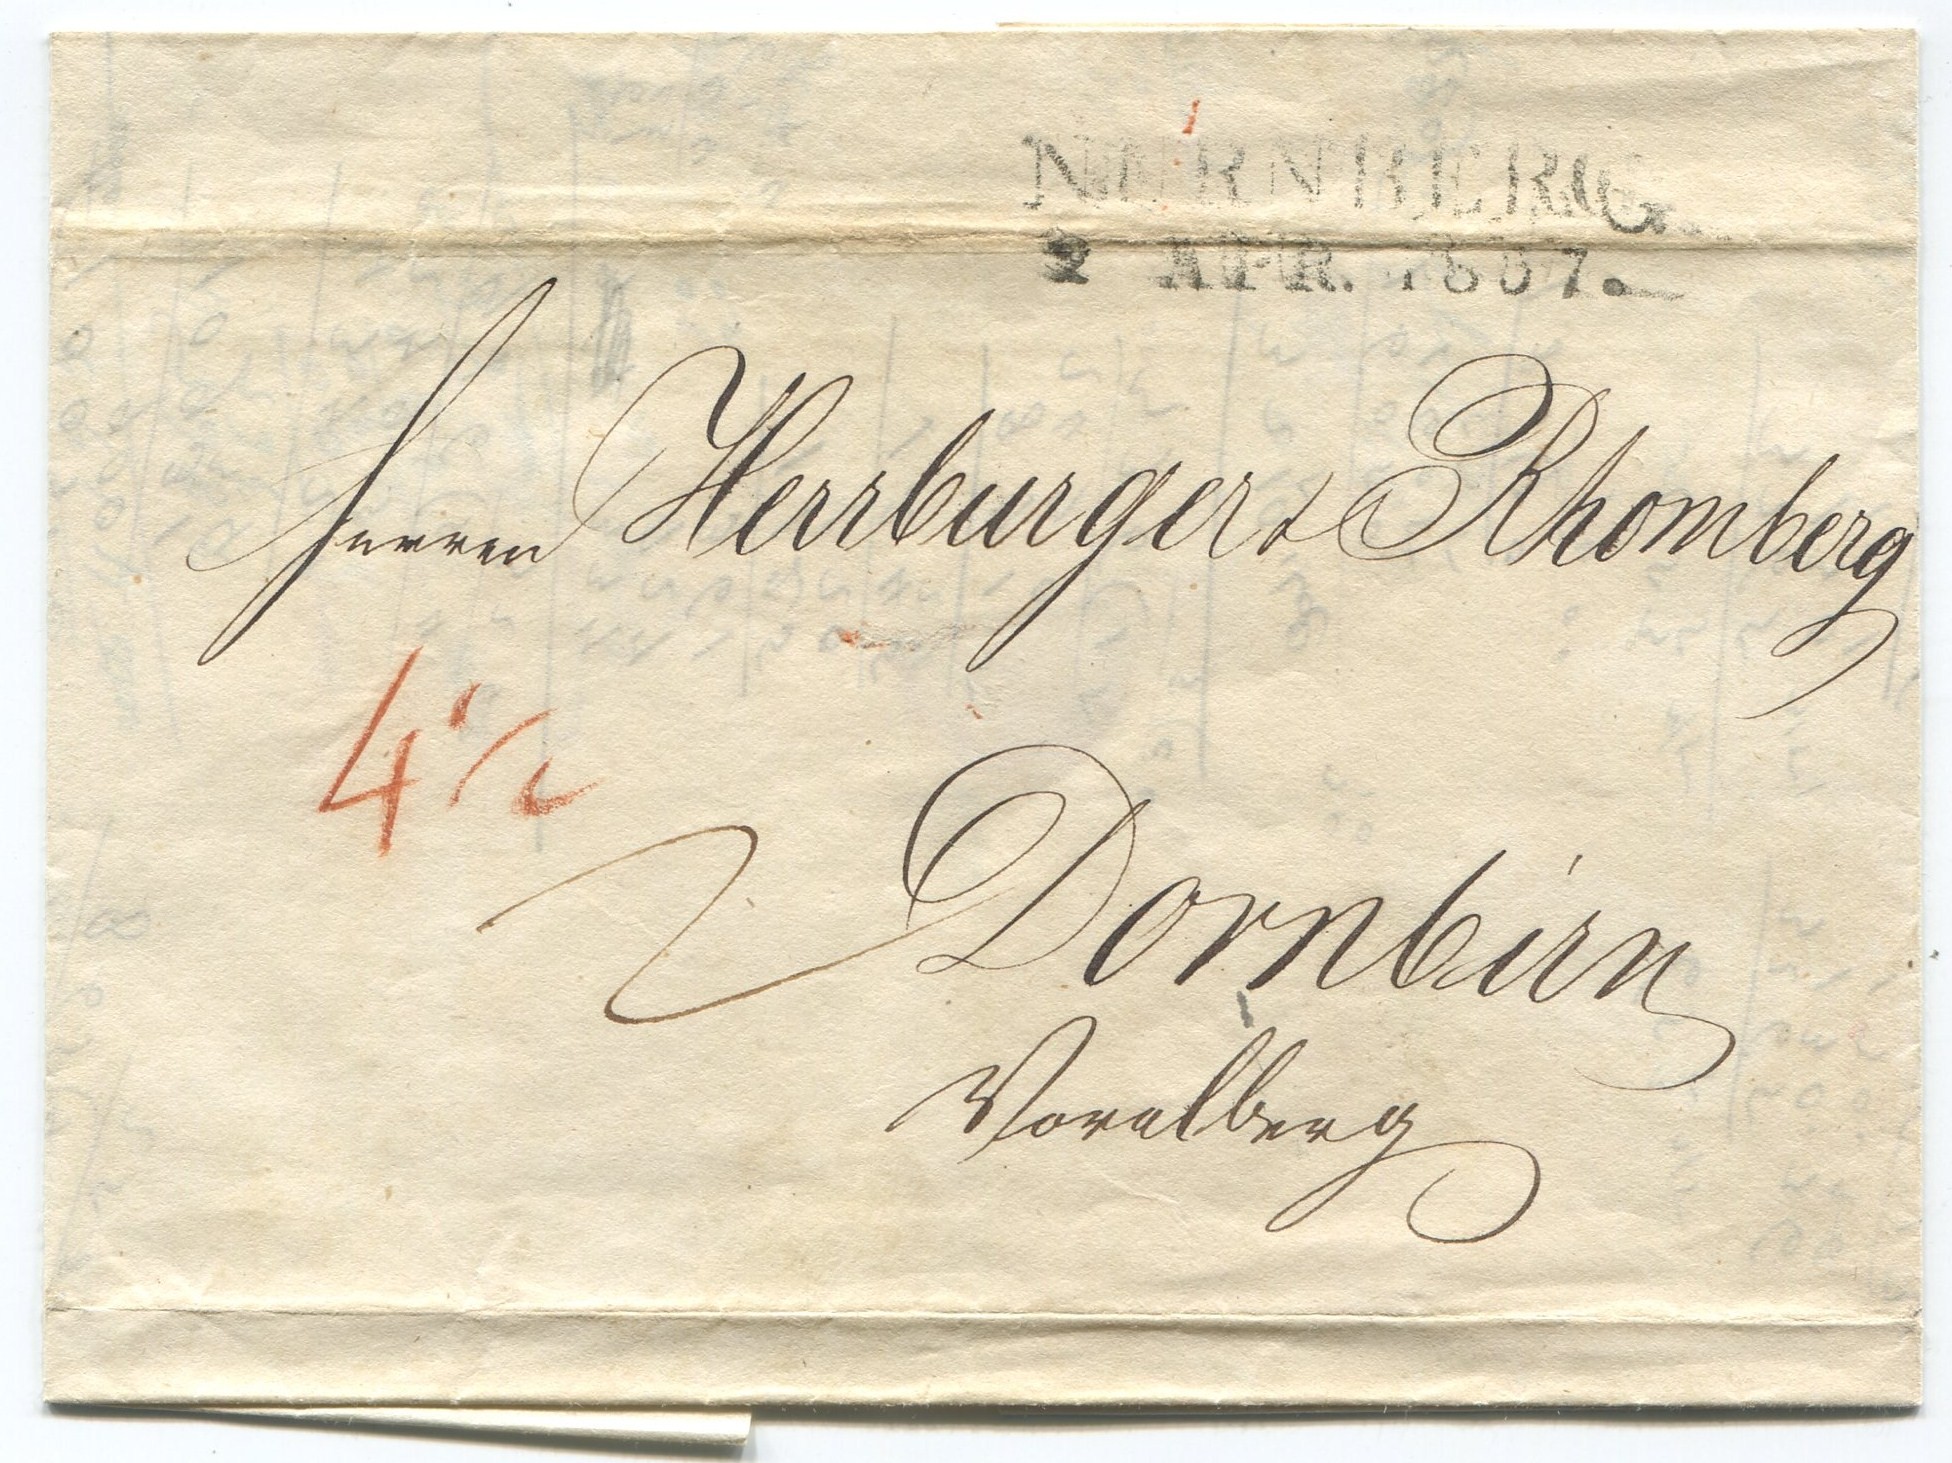 NÜRNBERG
2 APR. 1837.
Herren Herrburger & Rhomberg
4 1/2
Dornbirn
Vorarlberg